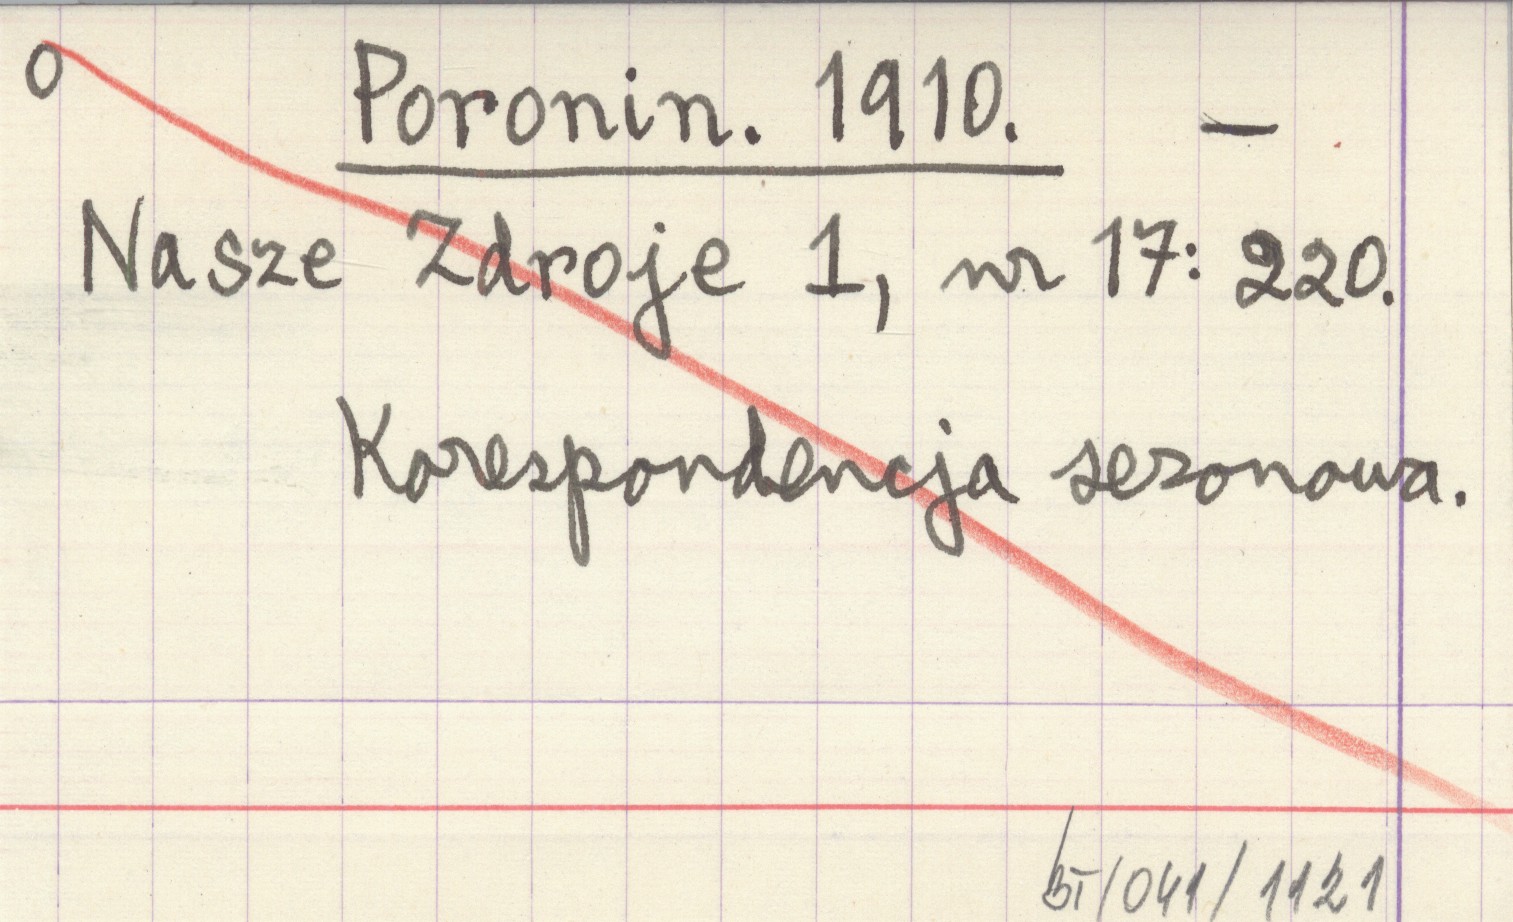 O Poronin. 1910. —
Nasze Zdroje 1, nr 17: 220.
Korespondencja sezonowa.
BI/041/1121